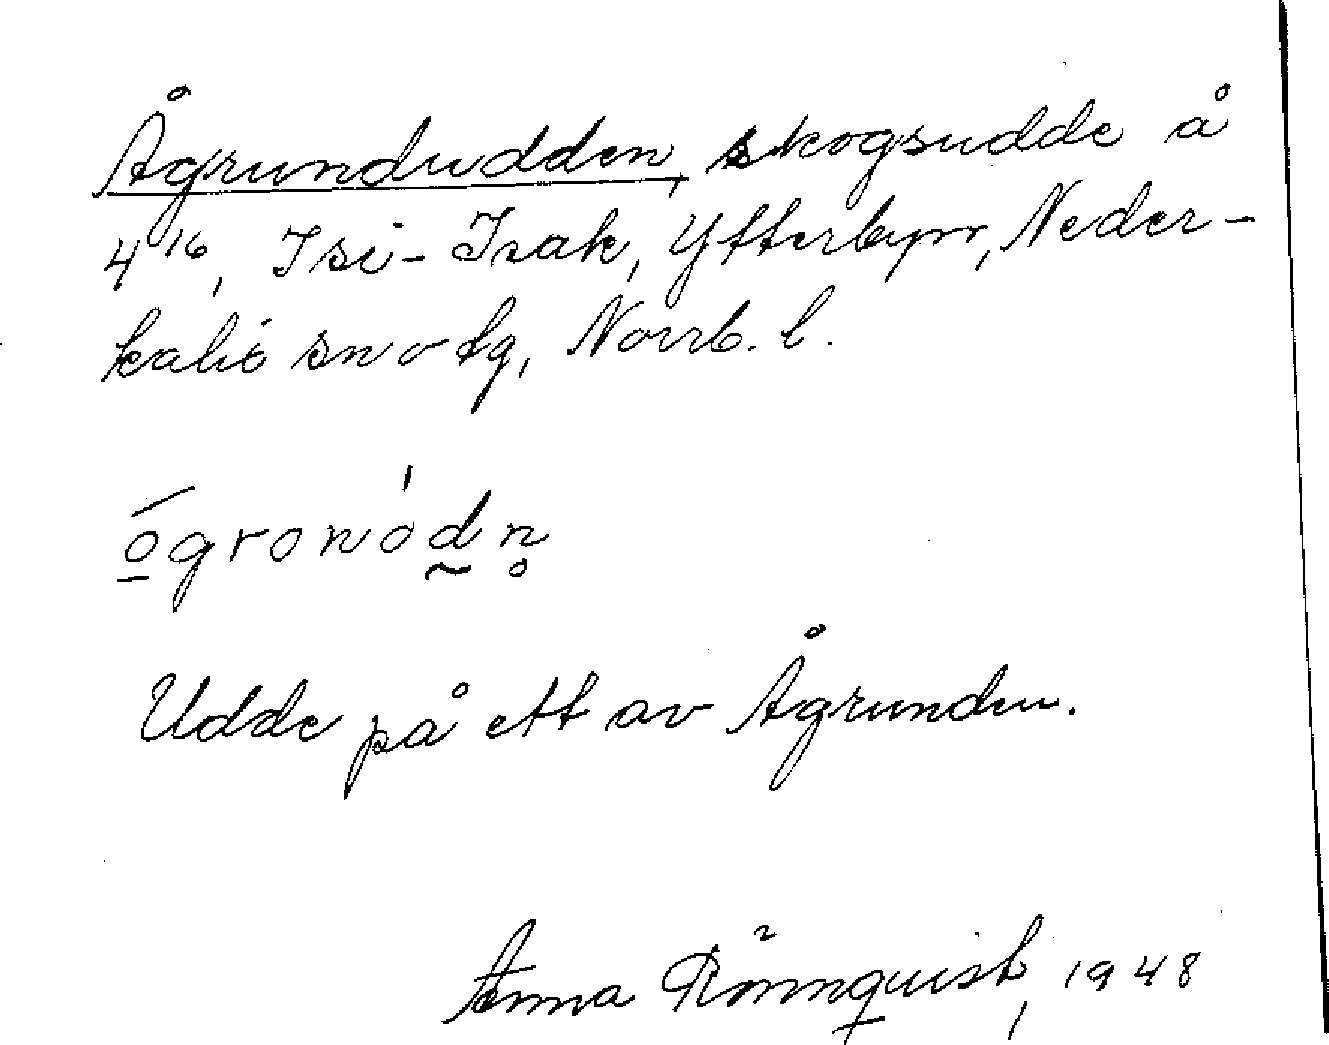 Ågrundudden, skogsudde å
4¹⁶, Isi-Isak, Ytterbyn, Neder-
kalix sn o tg, Norrb. l.
ógronódn̥
Udde på ett av Ågrunden.
Anna Rönnquist, 1948